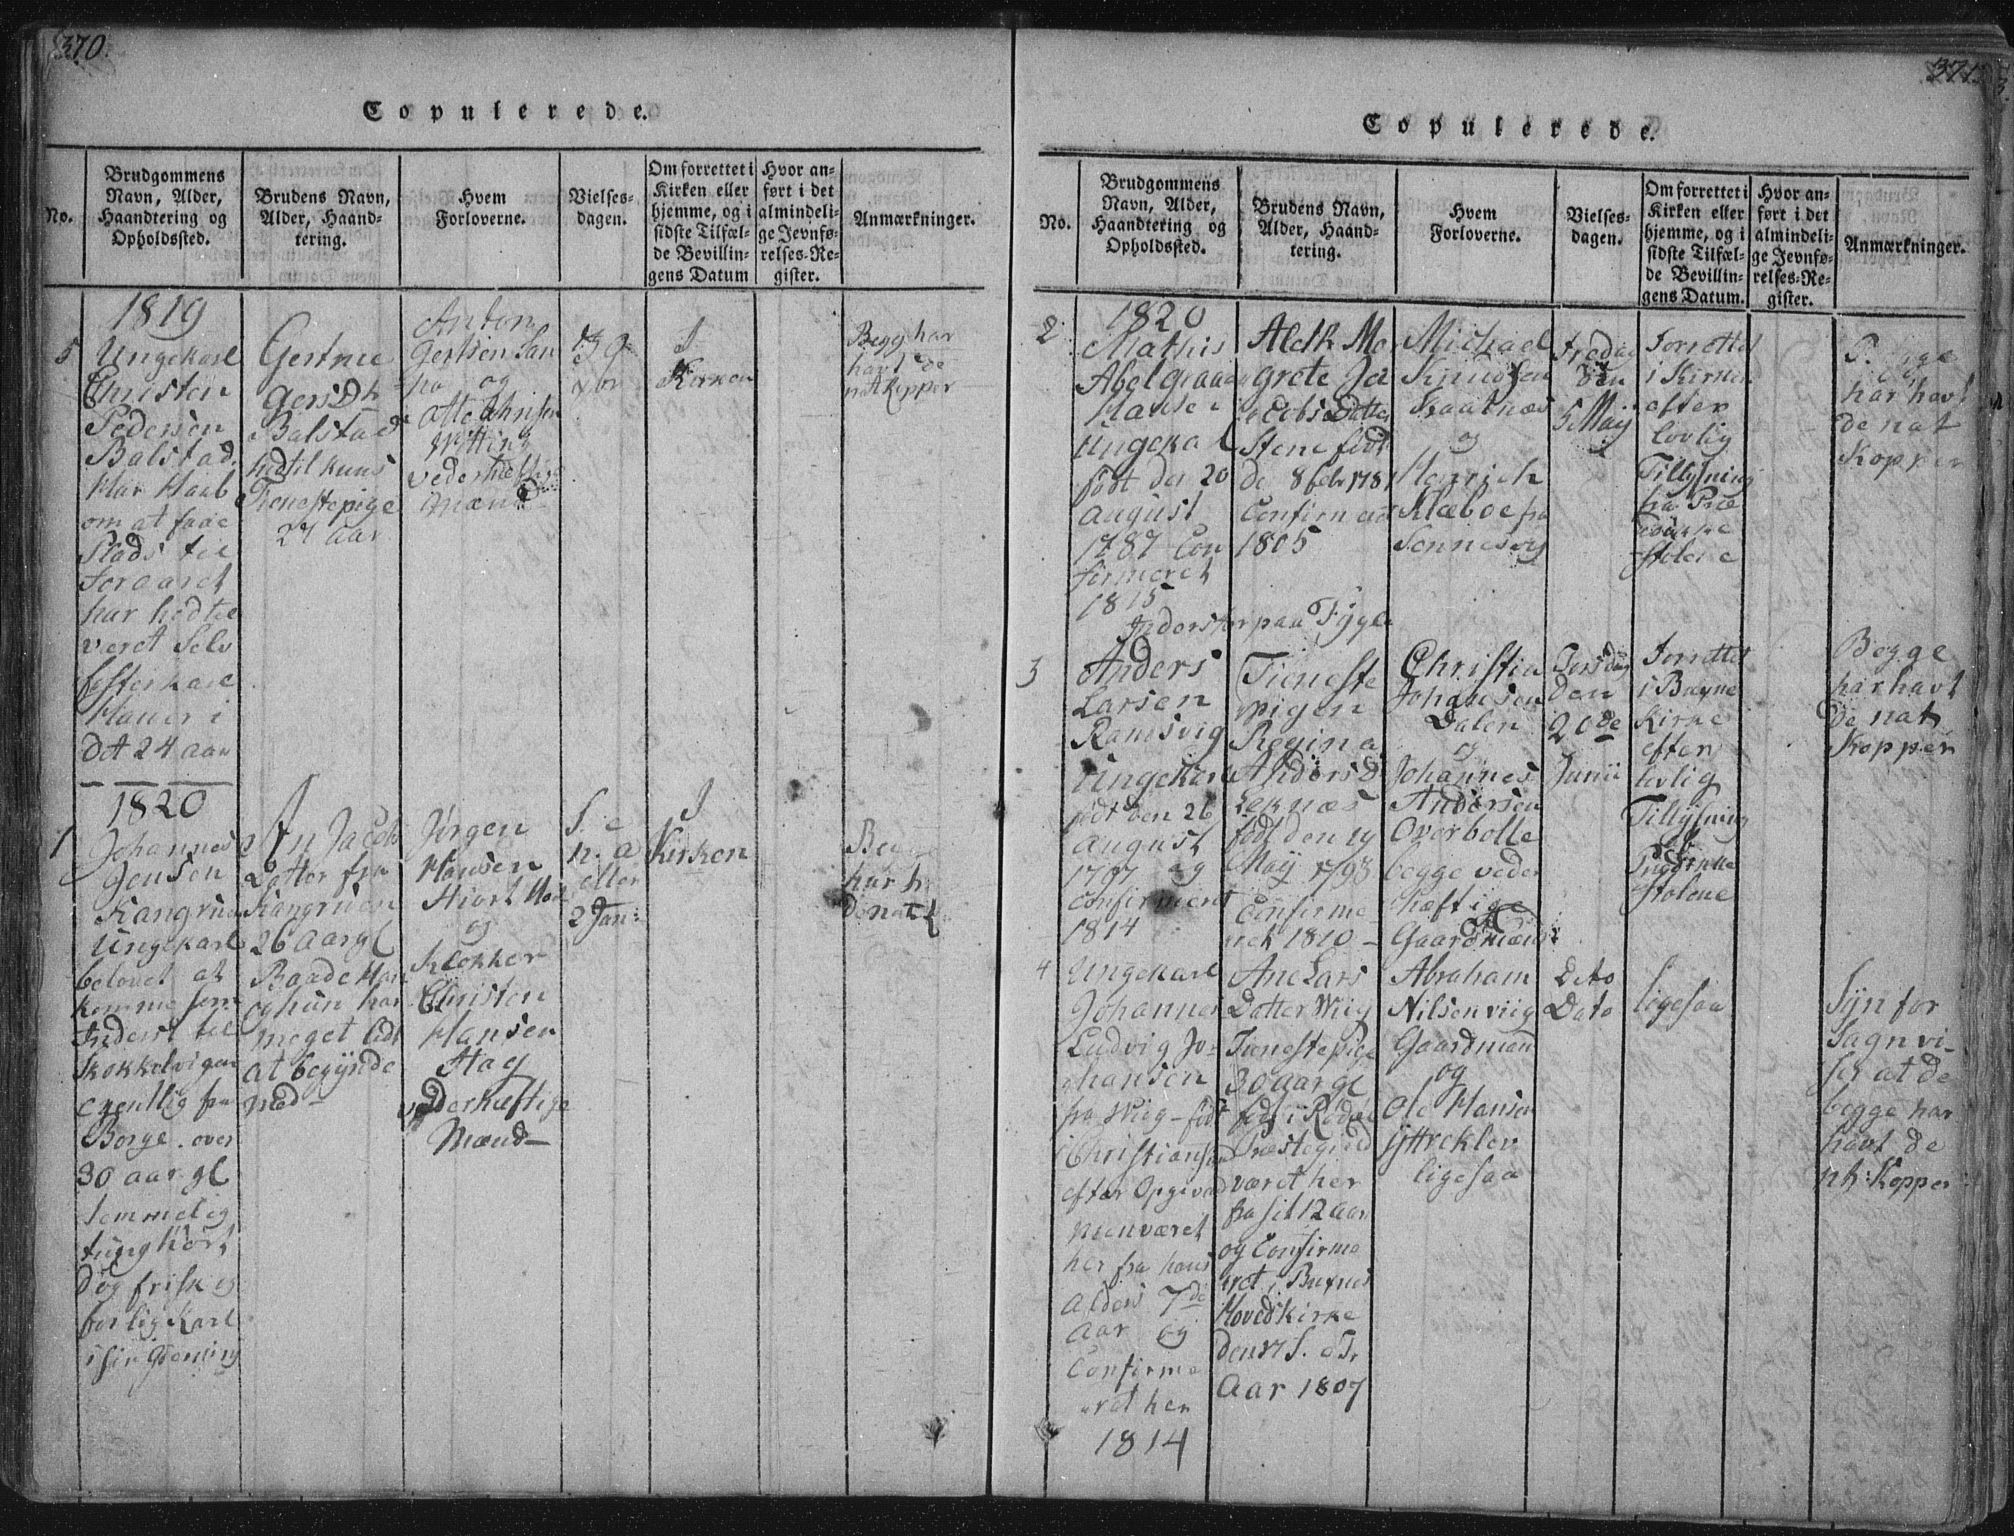 370.
Copulerede.
No.
Brudgommens
Navn, Alder,
Haandtering og
Opholdssted.
Brudens Navn,
Alder, Haand-
tering.
Hvem
Forloverne.
Vielses-
dagen.
Om forrettet i
Kirken eller
hjemme, og i
sidste Tilfæl-
de Bevillin-
gens Datum
Hvor an-
ført i det
almindeli-
ge Jevnfø-
relses-Re-
gister.
Anmærkninger.
1819
5
Ungekarl
Christen
Pedersen
Balstad.
Har Haab
om at faae
Plads til
Foraaret
har hidtil
været Selv
foster karl
Han er i
det 24 Aar
Gertrue
Gers Dtr
Balstad
hidtil huus
Tienestepige
24 aar
Anton
Gertsen San
og
Otte Chrisen
Witting
vederhæftige
Mænd
I
Kirken
Begge har
havt de
nat kopper
1820
1
Johannes
Jensen
Kangruen
Ungekarl
belovet at
komme som
Inderst til
Skokkelvigen
egentlig fra
Borge. over
30 aar gl
temmelig
tunghørt
dog frisk og
før lig Karl
i sin Gierning
An Jacobs
Datter fra
Kangruen
26 Aar gl
Baade Han
og hun har
meget lidt
at begynde
med -
Jørgen
Hansen
Hiort
og
Klokker
Christen
Hansen
Hag
vederhæftige
Mænd -
S. e
n. a
eller
2 Jan:
I
Kirken
Be
har h
de nat
371.
Copulerede.
No.
Brudgommens
Navn, Alder,
Haandtering og
Opholdssted.
Brudens Navn,
Alder, Haand-
tering.
Hvem
Forloverne.
Vielses-
dagen.
Om forrettet i
Kirken eller
hjemme, og i
sidste Tilfæl-
de Bevillin-
gens Datum.
Hvor an-
ført i det
almindeli-
ge Jevnfø-
relses-Re-
gister.
Anmærkninger.
2
1820
Mathis
Abelgraaen
Hansen
Ungekarl
født den 20
August
1787 Con
firmeret
1815
Inderster paa Fygle
Aleth Mar
grete Ja
cobs Datter
Stene født
de 8 febr 1781
Confirmeret
1805
Michael
Knudsen
Skaatnæs
og
Henrich
Klæboe fra
Sennesvig
fredag
den
5 Maij
Forrettet
i Kirken
efter
lovlig
Tillysning
fra Præ
dikke
stolene
Begge
har havt
de nat
Kopper
3
Anders
Larsen
Ramsvig
Ungekarl
født den 26
August
1797 og
Confirmeret
1814
Tieneste
pigen
Regina
Anders D
Leknæs
født den 19
Maij 1793
Confirme-
ret 1810 -
Christen
Johansen
Dalen
og
Johannes
Andersen
Overbolle
begge veder
hæftige
Gaardmænd
Torsdag
den
20de
Junii
Forrettet
i Buxne
Kirke
efter
lovlig
Tillysning
fra
Prædikke
stolene
Begge
har havt
de nat
Kopper
4
Ungekarl
Johannes
Ludvig Jo-
hansen
fra Wiig - født
i Christiansund
efter Opgivend
men været
her fra hans
Alders 7de
Aar og
Confirme
ret her
1814
Ane Lars
Datter Wiig
Tienestepige
30 aar gl
født i Rødøe
Præstegield
været her
fra sit 12 Aar
og Confirme
ret i Buxnes
Hovedkirke
den 17 S. e Tr
Aar 1807
Abraham
Nilsen viig
Gaardmand
og
Ole Hansen
yttreklev
ligesaa
Dito
Dato
ligesaa
Syn for
Sagn vi-
ser at de
begge har
havt de
nt: Kopper